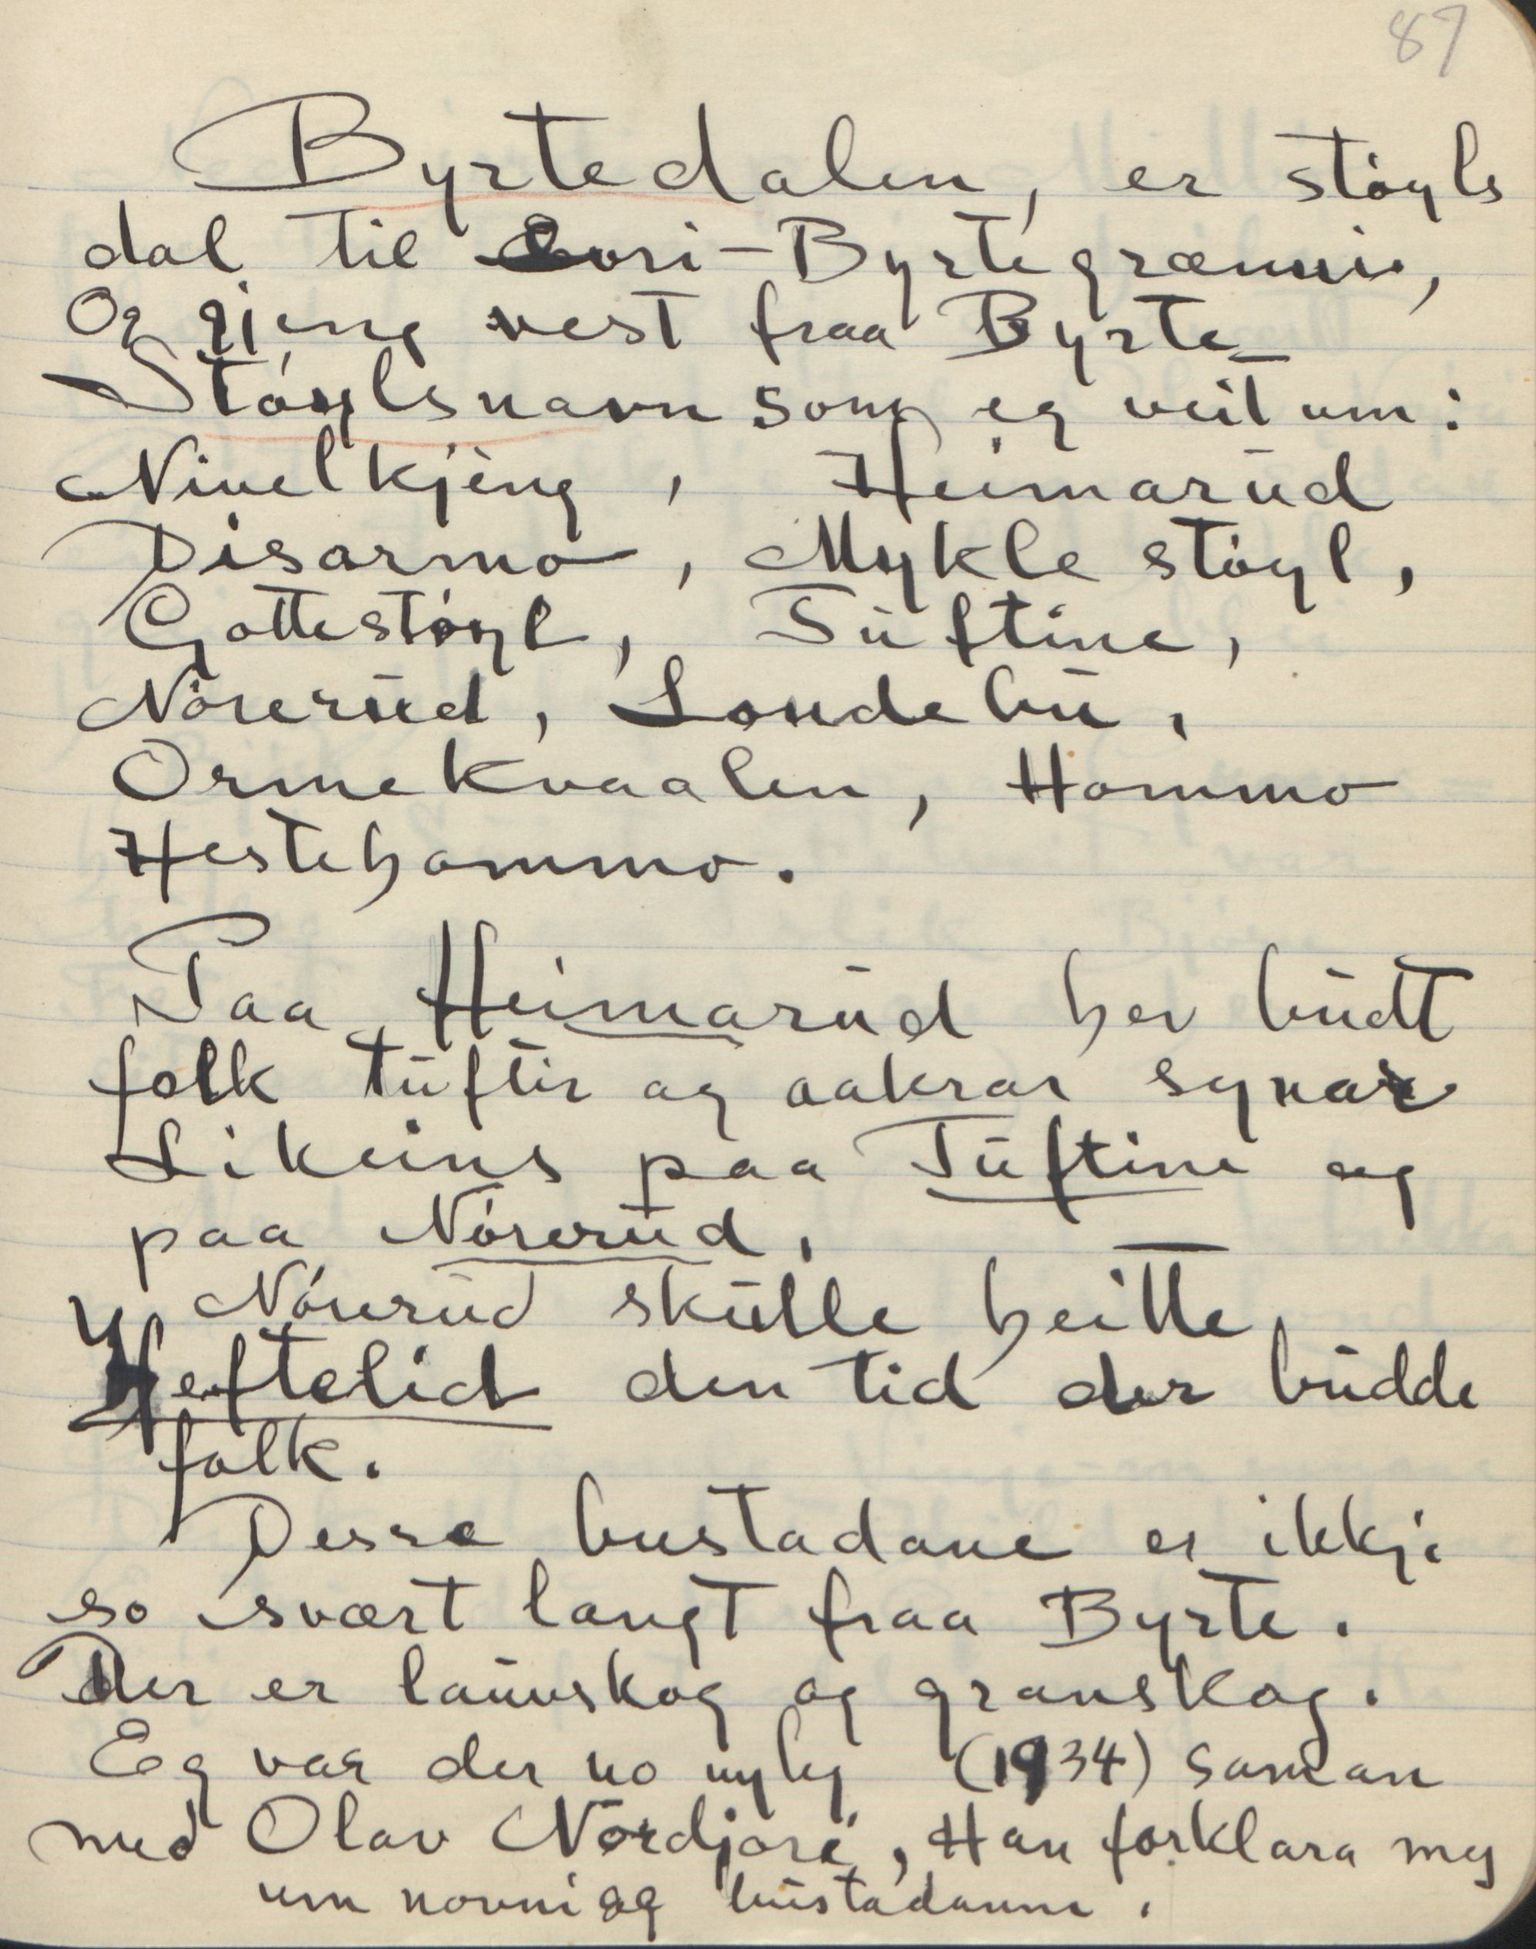 87
Byrtedalen, er støyls
dal til Øvri-Byrtegrænni,
og gjeng vest fraa Byrte
Støylsnavn som eg veit um:
Nivelkjeng, Heimarud
Disarmo, Mykle støyl,
Gottestøyl, Tuftine,
Nørerud, Londebu,
Ormekvaalen, Hommo
Hestehommo.
Paa Heimarud hev budt
folk tuftir og aakrar synar
Likeins paa Tuftine og
paa Nørerud.
Nørerud skulle heitte
Heftelid den tid der budde
folk.
Desse bustadane er ikkje
so svært langt fraa Byrte.
Der er lauvskog og granskog.
Eg var der no nyleg (1934) saman
med Olav Nordjore, Han forklara meg
um novni og bustadanne.